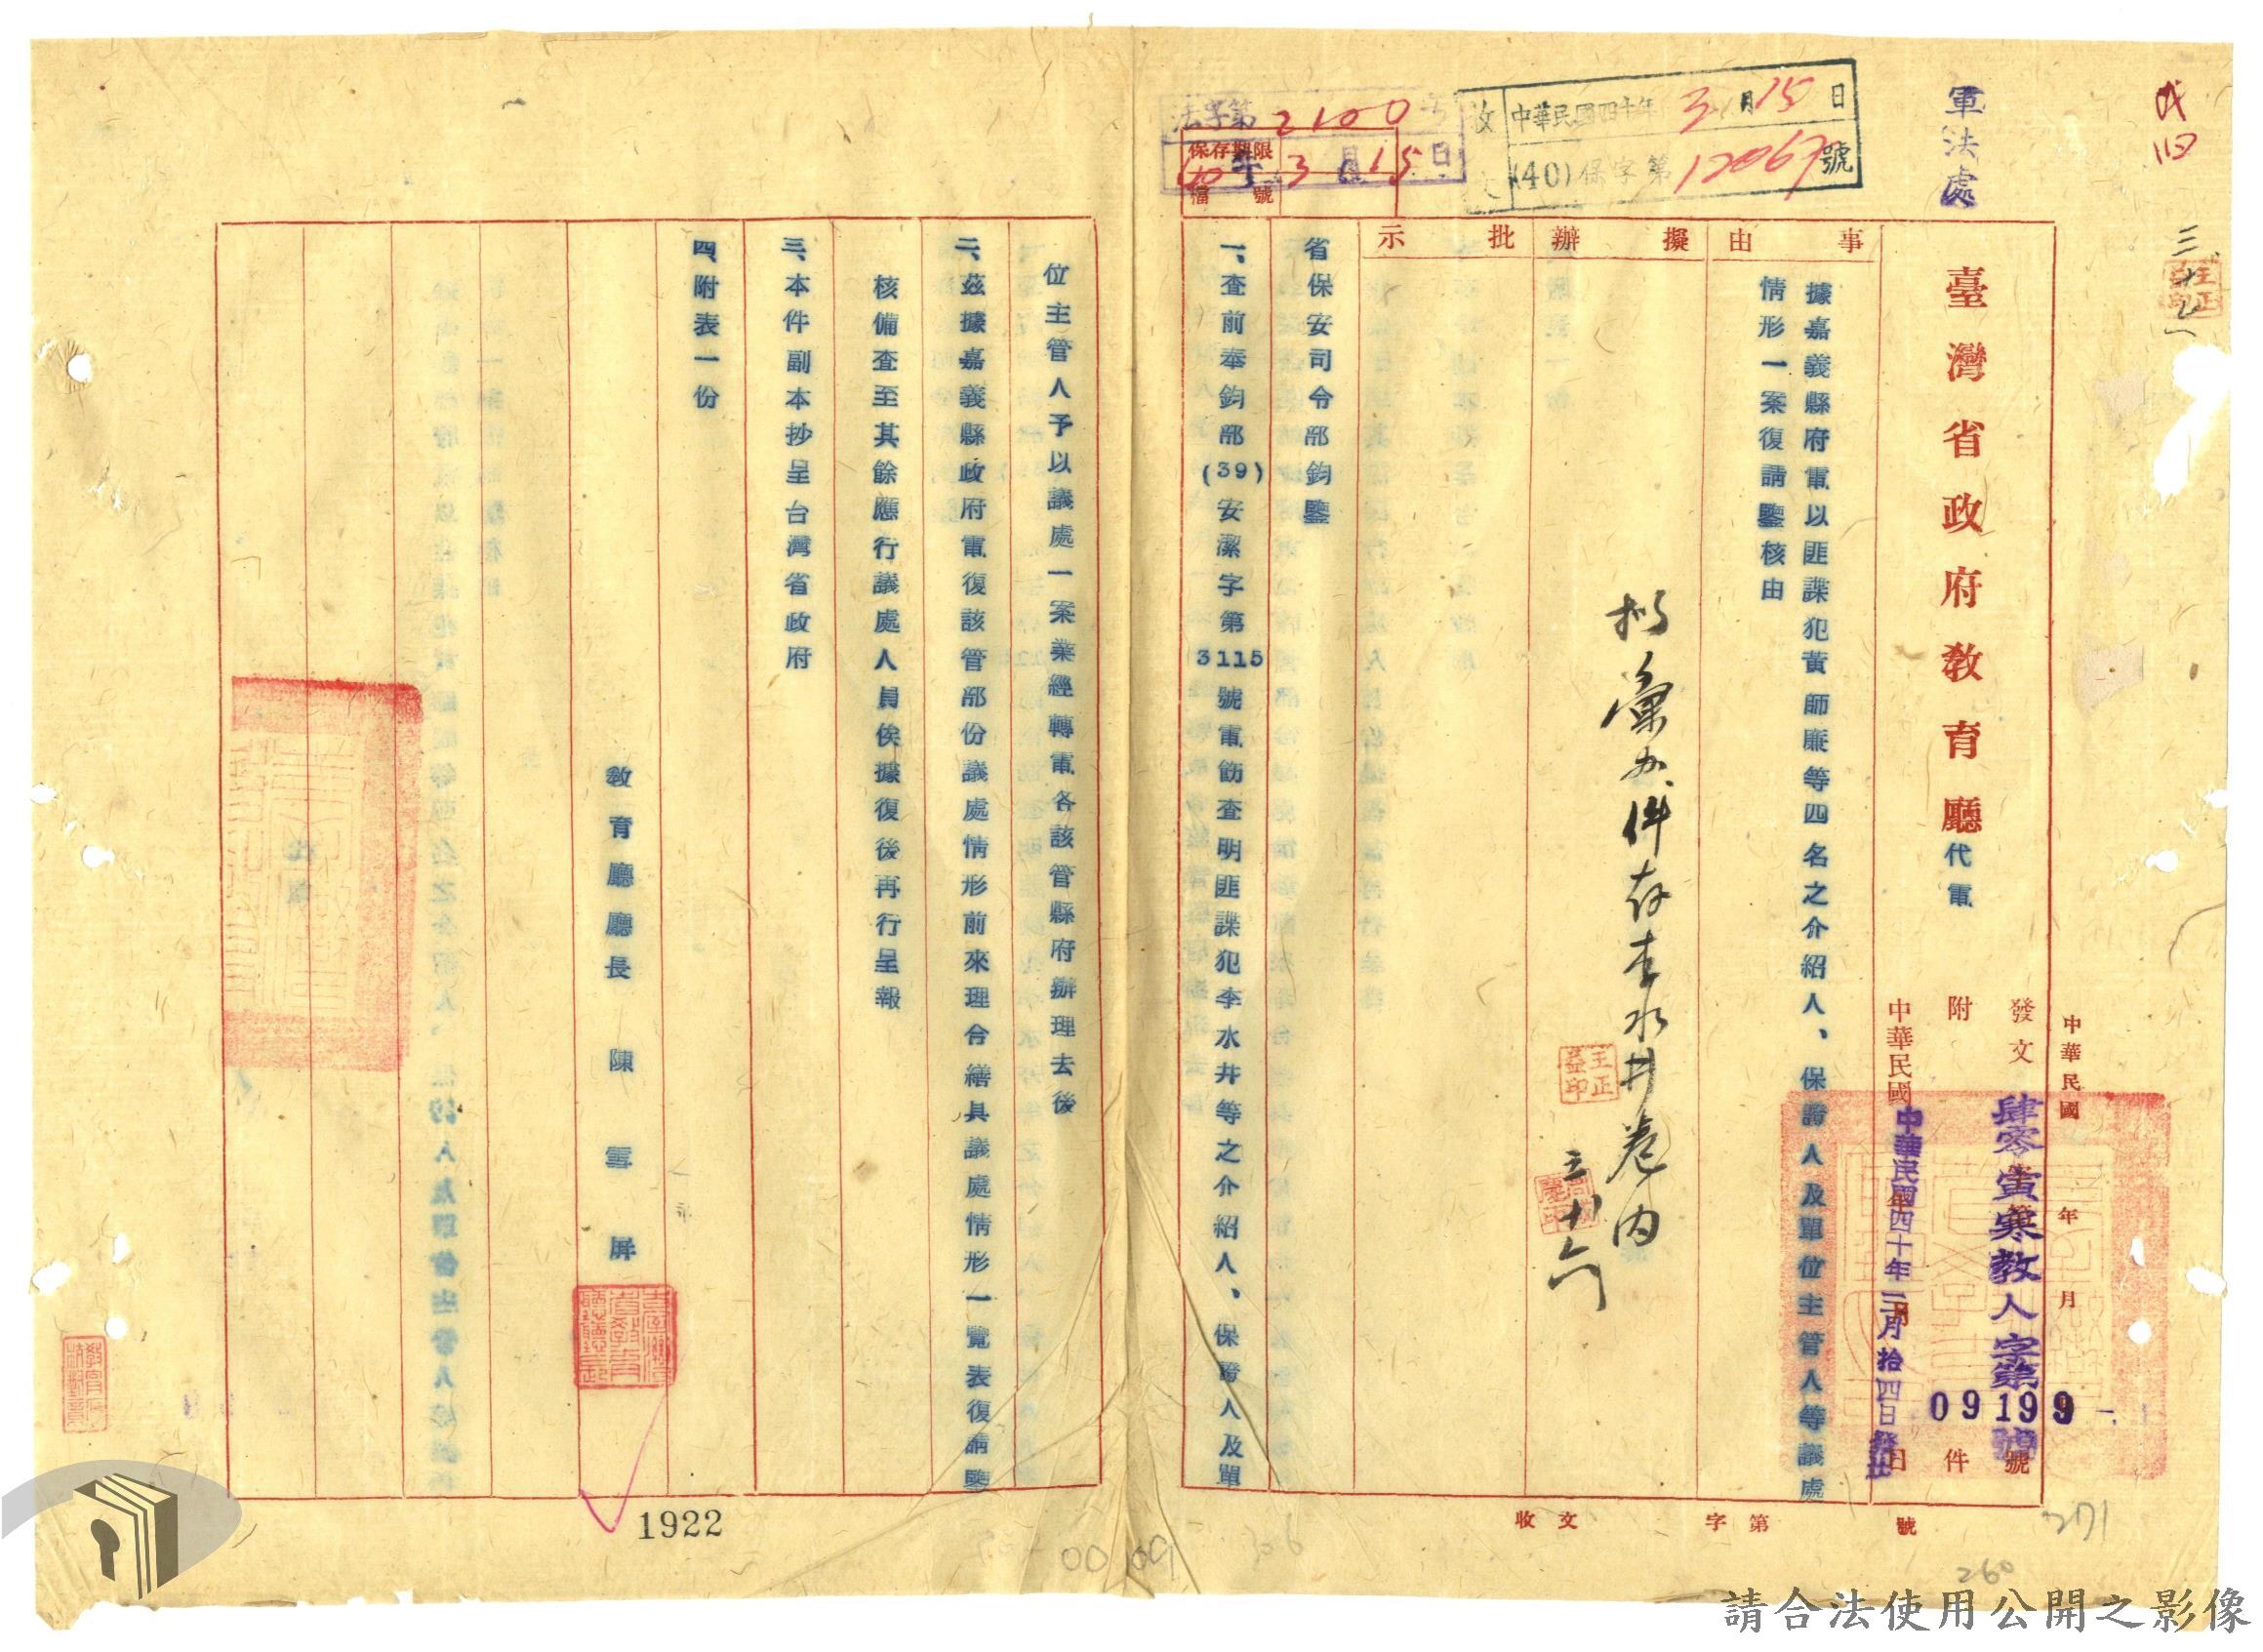 軍法處
收 中華民國四十年3月15日
(40)保字第12067號
法字第2100号
40年3月15日
保存期限
檔號
臺灣省政府教育廳代電
中華民國 年 月
發文 肆零寅寒教人字第09199號
附件
中華民國四十年三月拾四日發出
事由
據嘉義縣府電以匪諜犯黃師廉等四名之介紹人、保證人及單位主管人等議處
情形一案復請鑒核由
擬辦
擬彙办件存李水井卷內
王正益印
三、十六
批示
省保安司令部鈞鑒
一、查前奉鈞部(39)安潔字第3115號電飭查明匪諜犯李水井等之介紹人、保證人及單
位主管人予以議處一案業經轉電各該管縣府辦理去後
二、茲據嘉義縣政府電復該管部份議處情形前來理合繕具議處情形一覽表復請鑒
核備查至其餘應行議處人員俟據復後再行呈報
三、本件副本抄呈台灣省政府
四、附表一份
教育廳廳長 陳雪屏
收文 字第 號
1922
00 09
271
260
請合法使用公開之影像